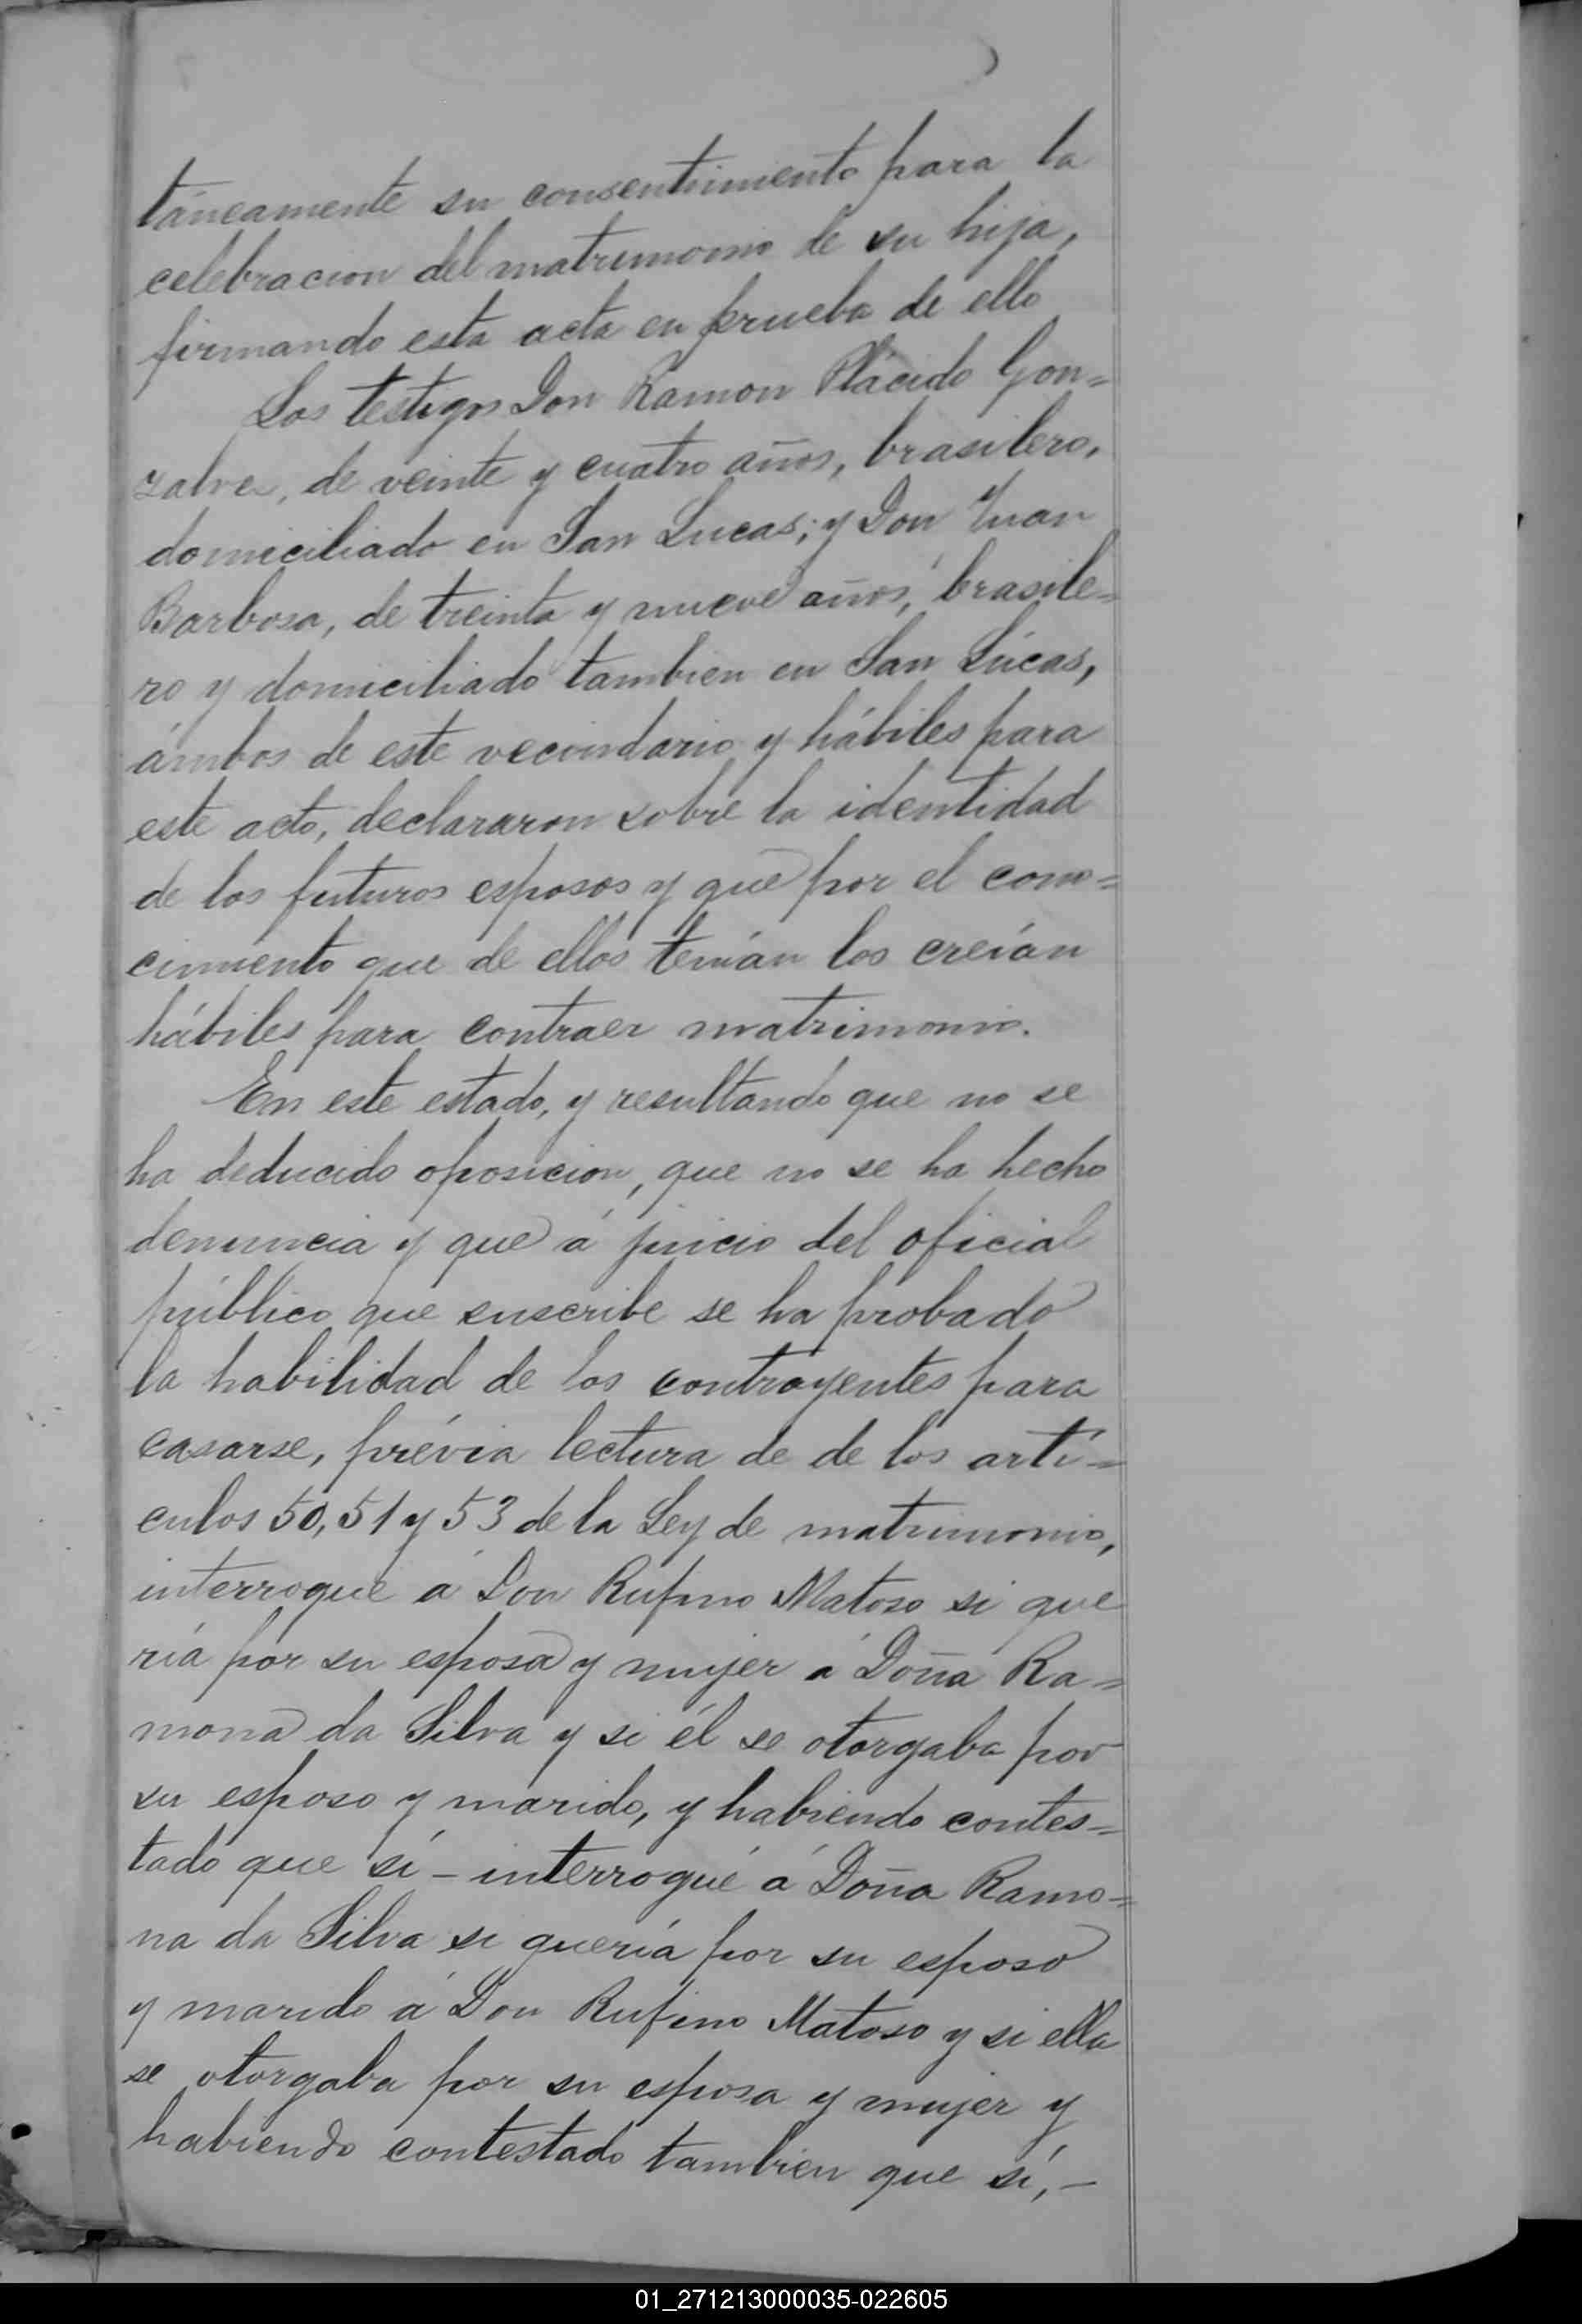 táneamente su consentimiento para la
celebracion del matrimonio de su hija,
firmando esta acta en prueba de ello
Los testigos Don Ramon Plácido Gon=
zalvez, de veinte y cuatro años, brasilero,
domiciliado en San Lucas; y Don Juan
Barbosa, de treinta y nueve años, brasile=
ro y domiciliado tambien en San Lúcas,
ámbos de este vecindario y hábiles para
este acto, declararon sobre la identidad
de los futuros esposos y que por el cono=
cimiento que de ellos tenían los creían
hábiles para contraer matrimonio.
En este estado, y resultando que no se
ha deducido oposicion, que no se ha hecho
denuncia y que á juicio del oficial
público que suscribe se ha probado
la habilidad de los contrayentes para
casarse, prévia lectura de de los artí=
culos 50, 51 y 53 de la Ley de matrimonio,
interrogué á Don Rufino Matoso si que
ría por su esposa y mujer á Doña Ra=
mona da Silva y si él se otorgaba por
su esposo y marido, y habiendo contes=
tado que sí – interrogué á Doña Ramo=
na da Silva si quería por su esposo
y marido á Don Rufino Matoso y si ella
se otorgaba por su esposa y mujer y
habiendo contestado tambien que sí, –
01_271213000035-022605